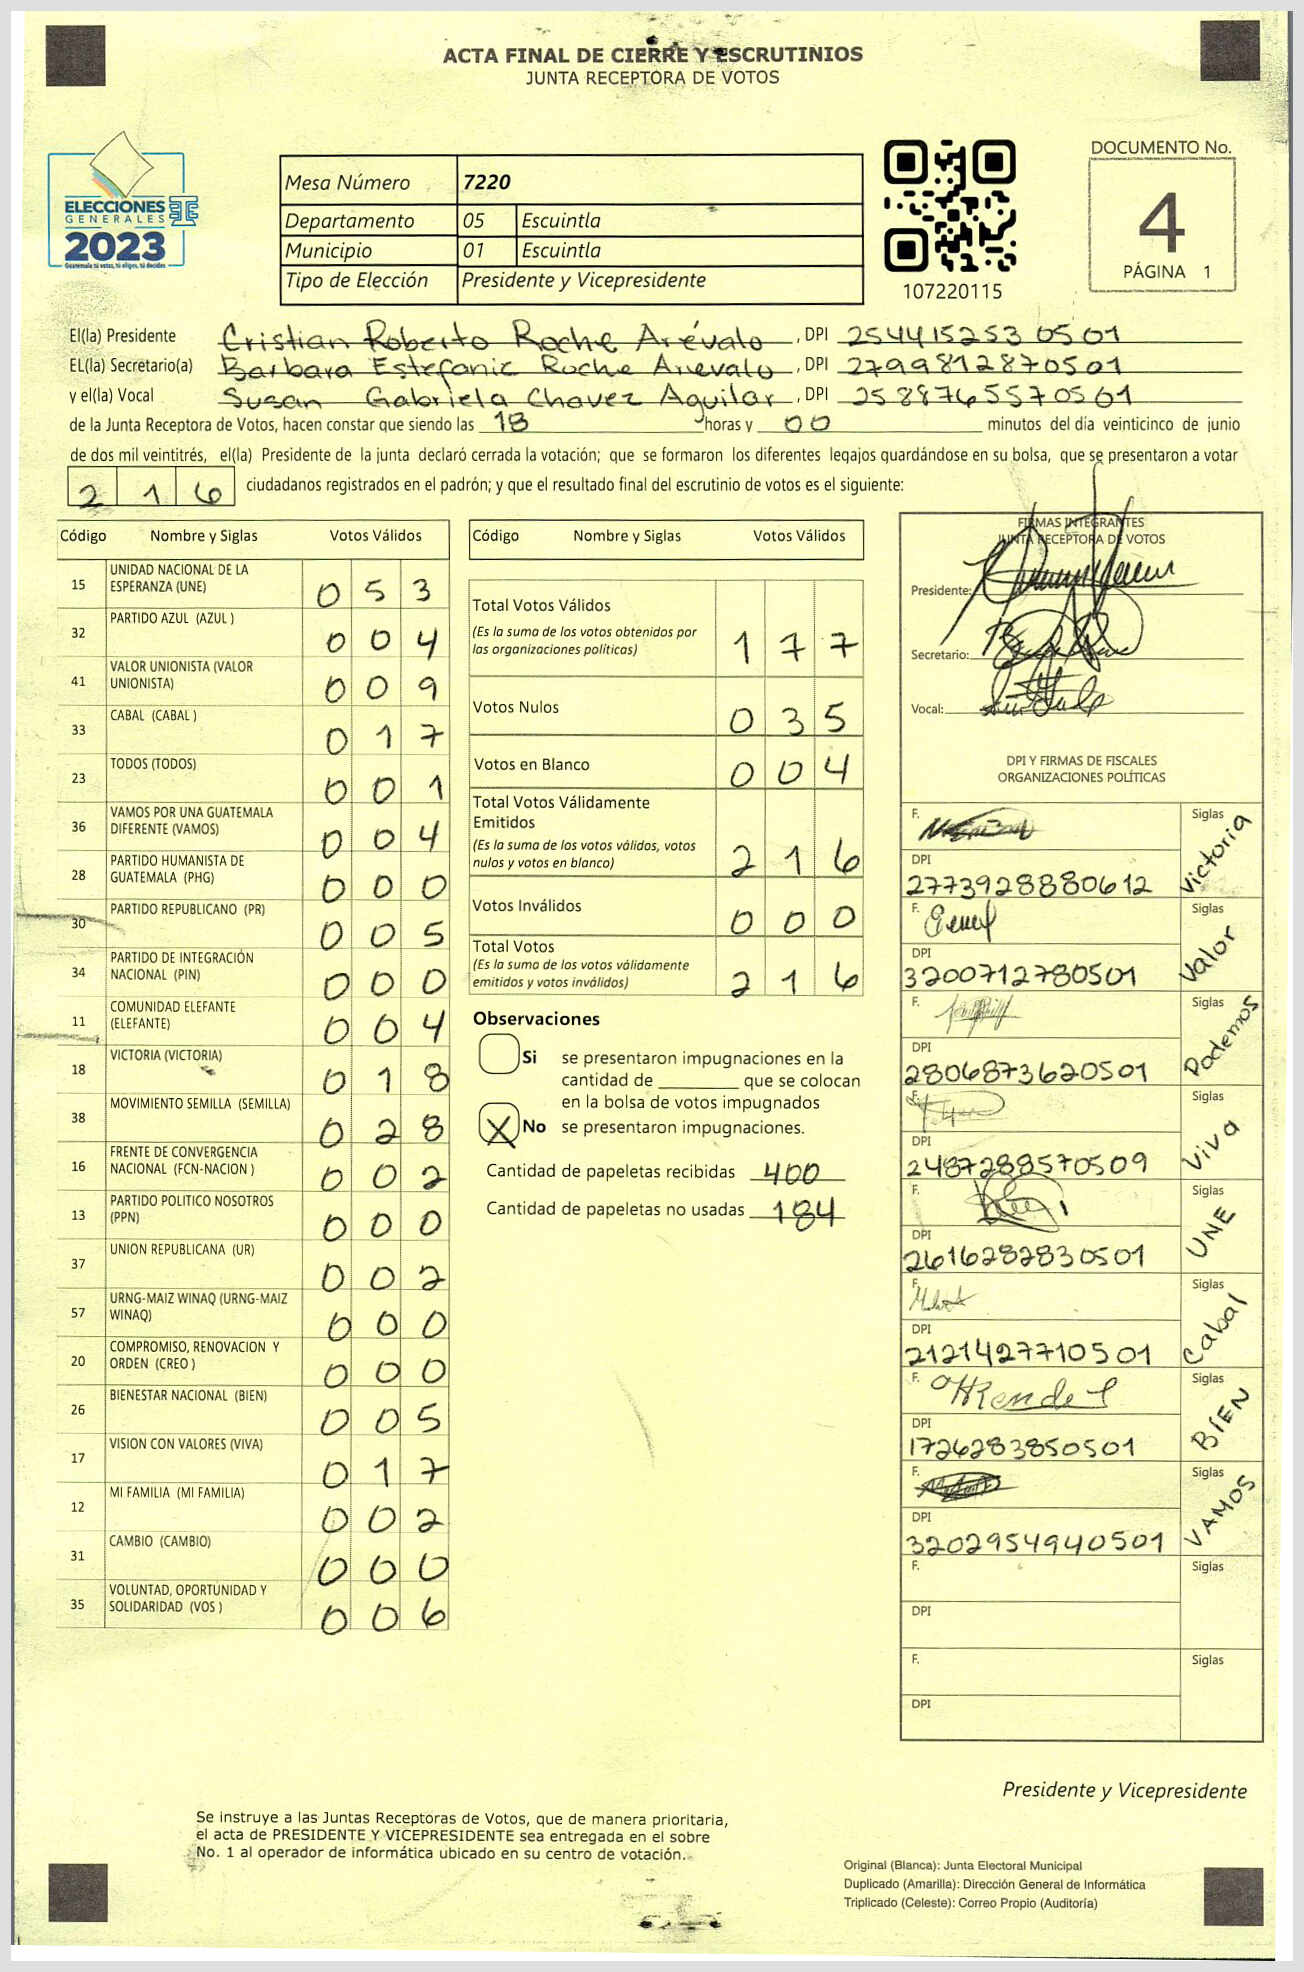 ACTA FINAL DE CIERRE Y ESCRUTINIOS
JUNTA RECEPTORA DE VOTOS
ELECCIONES
GENERALES
2023
Guatemala tú votas, tú eliges, tú decides
Mesa Número 7220
Departamento 05 Escuintla
Municipio 01 Escuintla
Tipo de Elección Presidente y Vicepresidente
107220115
DOCUMENTO No.
4
PÁGINA 1
El(la) Presidente Cristian Roberto Roche Arévalo, DPI 2544152530501
EL(la) Secretario(a) Barbara Estefanic Roche Arevalo, DPI 2799812870501
y el(la) Vocal Susan Gabriela Chavez Aguilar, DPI 2588765570501
de la Junta Receptora de Votos, hacen constar que siendo las 18 horas y 00 minutos del día veinticinco de junio
de dos mil veintitrés, el(la) Presidente de la junta declaró cerrada la votación; que se formaron los diferentes legajos guardándose en su bolsa, que se presentaron a votar
216 ciudadanos registrados en el padrón; y que el resultado final del escrutinio de votos es el siguiente:
Código Nombre y Siglas Votos Válidos
15 UNIDAD NACIONAL DE LA ESPERANZA (UNE) 053
32 PARTIDO AZUL (AZUL ) 004
41 VALOR UNIONISTA (VALOR UNIONISTA) 009
33 CABAL (CABAL ) 017
23 TODOS (TODOS) 001
36 VAMOS POR UNA GUATEMALA DIFERENTE (VAMOS) 004
28 PARTIDO HUMANISTA DE GUATEMALA (PHG) 000
30 PARTIDO REPUBLICANO (PR) 005
34 PARTIDO DE INTEGRACIÓN NACIONAL (PIN) 000
11 COMUNIDAD ELEFANTE (ELEFANTE) 004
18 VICTORIA (VICTORIA) 018
38 MOVIMIENTO SEMILLA (SEMILLA) 028
16 FRENTE DE CONVERGENCIA NACIONAL (FCN-NACION ) 002
13 PARTIDO POLITICO NOSOTROS (PPN) 000
37 UNION REPUBLICANA (UR) 002
57 URNG-MAIZ WINAQ (URNG-MAIZ WINAQ) 000
20 COMPROMISO, RENOVACION Y ORDEN (CREO ) 000
26 BIENESTAR NACIONAL (BIEN) 005
17 VISION CON VALORES (VIVA) 017
12 MI FAMILIA (MI FAMILIA) 002
31 CAMBIO (CAMBIO) 000
35 VOLUNTAD, OPORTUNIDAD Y SOLIDARIDAD (VOS ) 006
Código Nombre y Siglas Votos Válidos
Total Votos Válidos 177
(Es la suma de los votos obtenidos por
las organizaciones políticas)
Votos Nulos 035
Votos en Blanco 004
Total Votos Válidamente
Emitidos 216
(Es la suma de los votos válidos, votos
nulos y votos en blanco)
Votos Inválidos 000
Total Votos 216
(Es la suma de los votos válidamente
emitidos y votos inválidos)
Observaciones
Si se presentaron impugnaciones en la
cantidad de ________ que se colocan
en la bolsa de votos impugnados
X No se presentaron impugnaciones.
Cantidad de papeletas recibidas 400
Cantidad de papeletas no usadas 184
FIRMAS INTEGRANTES
JUNTA RECEPTORA DE VOTOS
Presidente:
Secretario:
Vocal:
DPI Y FIRMAS DE FISCALES
ORGANIZACIONES POLÍTICAS
F. Siglas Victoria
DPI
2773928880612
F. Siglas Valor
DPI
3200712780501
F. Siglas Podemos
DPI
2806873620501
F. Siglas Viva
DPI
2487288570509
F. Siglas UNE
DPI
2616282830501
F. Siglas Cabal
DPI
2121427710501
F. Siglas BIEN
DPI
1726283850501
F. Siglas VAMOS
DPI
3202954940501
F. Siglas
DPI
F. Siglas
DPI
Presidente y Vicepresidente
Se instruye a las Juntas Receptoras de Votos, que de manera prioritaria,
el acta de PRESIDENTE Y VICEPRESIDENTE sea entregada en el sobre
No. 1 al operador de informática ubicado en su centro de votación.
Original (Blanca): Junta Electoral Municipal
Duplicado (Amarilla): Dirección General de Informática
Triplicado (Celeste): Correo Propio (Auditoría)